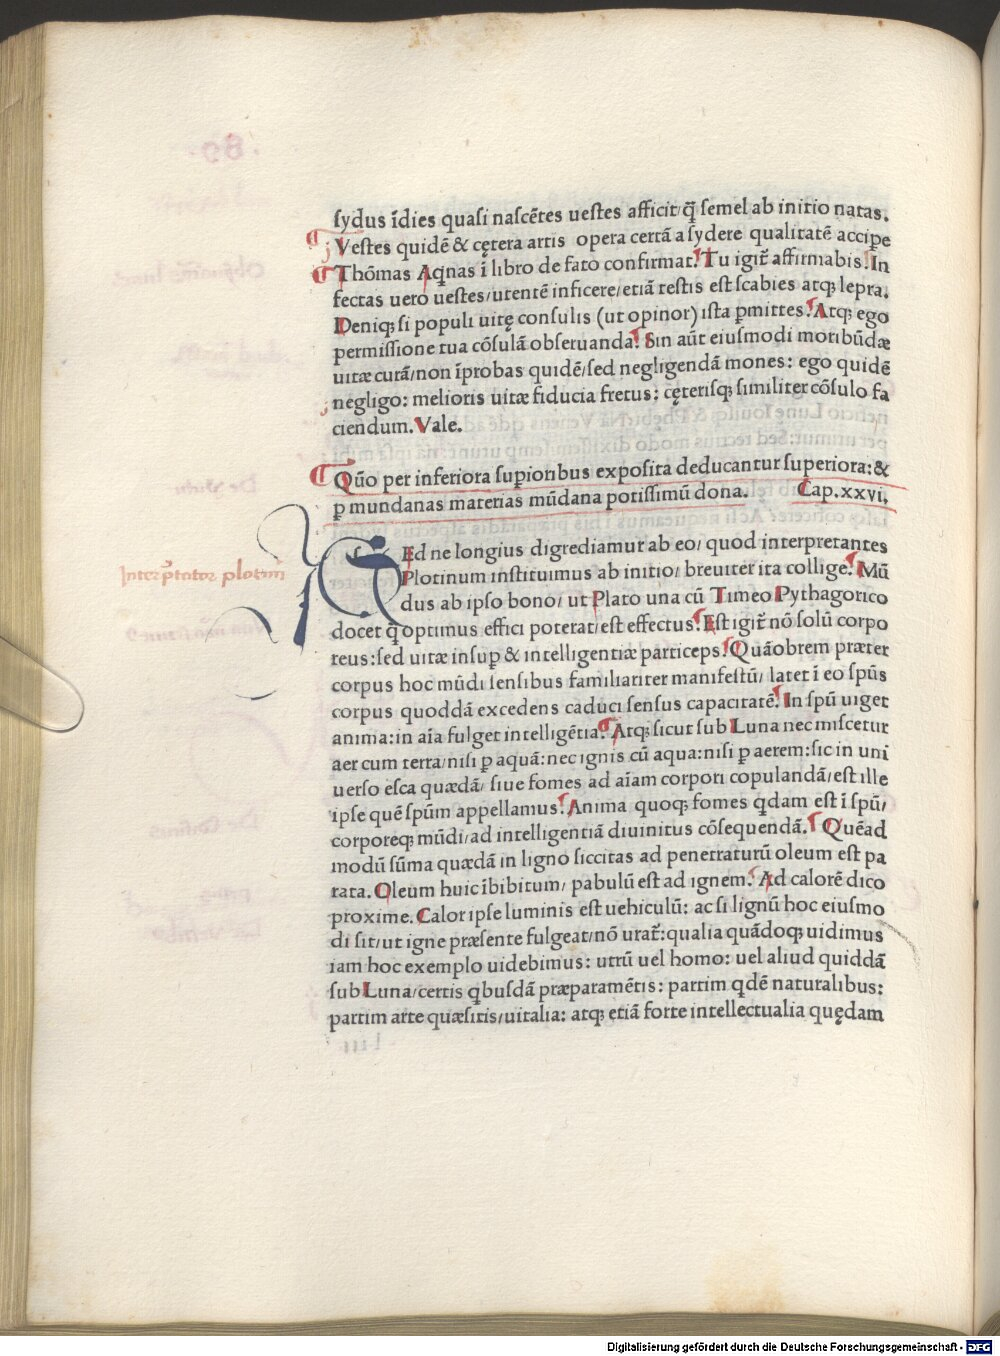 sydus īdies quasi nascētes uestes afficit/q̄ semel ab initio natas.
Vestes quidē & cętera artis opera certā a sydere qualitatē accipe
Thōmas Aqnas ī libro de fato confirmat. Tu igit̄ affirmabis. In
fectas uero uestes/utentē inficere/etiā testis est scabies atq; lepra.
Deniq; si populi uitę consulis (ut opinor) ista p̱mittes. Atq; ego
permissione tua cōsulā obseruanda. Sin aūt eiusmodi moribūdæ
uitæ curā/non īprobas quidē/sed negligendā mones: ego quidē
negligo: melioris uitæ fiducia fretus: cęterisq; similiter cōsulo fa
ciendum. Vale.
Quō per inferiora supioribus exposita deducantur superiora: &
p̱ mundanas materias mūdana potissimū dona. Cap.xxvi.
Interp̄tator plotini
s Ed ne longius digrediamur ab eo/ quod interpretantes
Plotinum instituimus ab initio/ breuiter ita collige. Mū
dus ab ipso bono/ ut Plato una cū Timeo Pythagorico
docet q̄ optimus effici poterat/est effectus. Est igit̄ nō solū corpo
reus: sed uitæ insup̱ & intelligentiæ particeps. Quāobrem præter
corpus hoc mūdi sensibus familiariter manifestū/ latet ī eo spūs
corpus quoddā excedens caduci sensus capacitatē. In spū uiget
anima: in aīa fulget intelligētia. Atq; sicut sub Luna nec miscetur
aer cum terra/nisi p̱ aquā: nec ignis cū aqua: nisi p̱ aerem: sic in uni
uerso esca quædā/ siue fomes ad aīam corpori copulandā/est ille
ipse quē spūm appellamus. Anima quoq; fomes qdam est ī spū/
corporeq; mūdi/ad intelligentiā diuinitus cōsequendā. Quēad
modū sūma quædā in ligno siccitas ad penetraturū oleum est pa
rata. Oleum huic ībibitum/ pabulū est ad ignem. Ad calorē dico
proxime. Calor ipse luminis est uehiculū: ac si lignū hoc eiusmo
di sit/ut igne præsente fulgeat/nō urat̄: qualia quādoq; uidimus
iam hoc exemplo uidebimus: utrū uel homo: uel aliud quiddā
sub Luna/certis qbusdā præparamētis: partim qdē naturalibus:
partim arte quæsitis/uitalia: atq; etiā forte intellectualia quędam
Digitalisierung gefördert durch die Deutsche Forschungsgemeinschaft - DFG